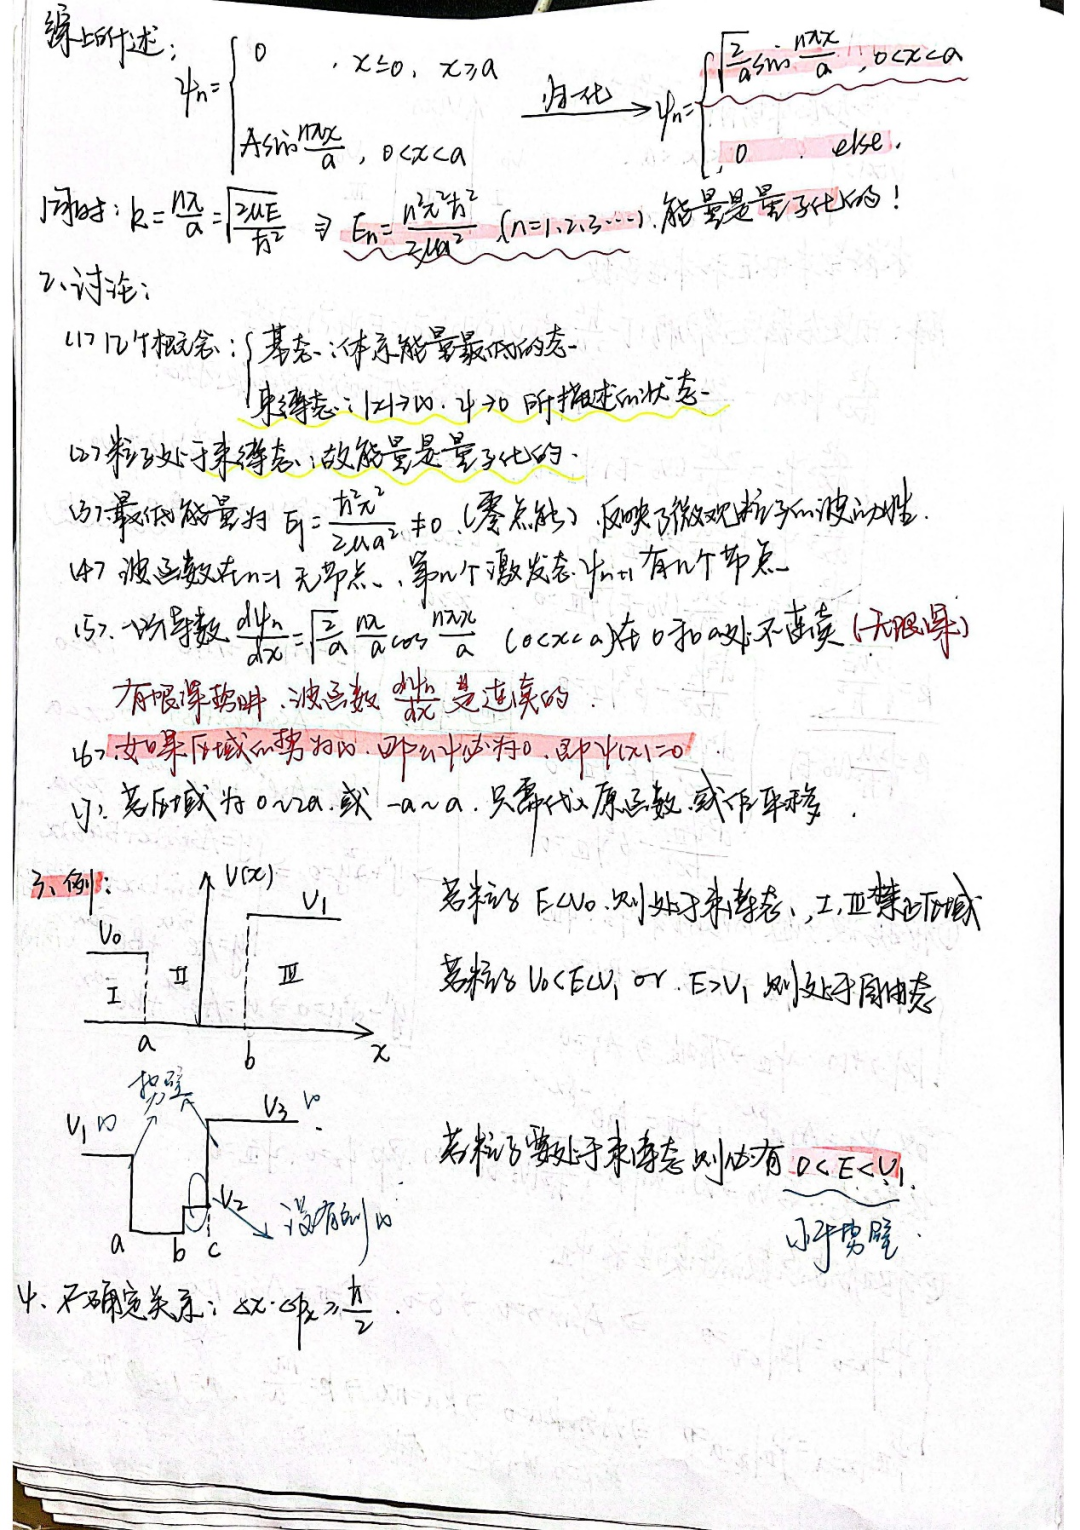 综上所述:
ψn = { 0 , x≤0, x≥a
Asin nπx/a , 0<x<a
归一化 → ψn = { √(2/a) sin nπx/a , 0<x<a
0 , else.
同时: k = nπ/a = √(2μE/ħ²) ⇒ En = n²π²ħ²/2μa² (n=1,2,3…). 能量是量子化的!
2、讨论:
(1) 几个概念: { 基态:体系能量最低的态.
束缚态: |x|→∞. ψ→0 所描述的状态.
(2) 粒子处于束缚态,故能量是量子化的.
(3) 最低能量为 E1 = ħ²π²/2μa² ≠0. (零点能) 反映了微观粒子的波动性.
(4) 波函数在n=1 无节点. 第n个激发态ψn+1 有n个节点.
(5). 一阶导数 dψn/dx = √(2/a) nπ/a cos nπx/a (0<x<a)在 0和a处不连续 (无限深)
有限深势阱. 波函数 dψn/dx 是连续的.
(6) 如果区域的势为∞. 即么ψ必为0. 即ψ(x)=0
(7): 若区域为 0~2a. 或 -a~a. 只需代入原函数.或作平移.
3、例:
V(x)
V0
V1
I
II
III
a
b
x
若粒子 E<V0. 则处于束缚态, I, III禁止区域
若粒子 V0<E<V1 or. E>V1 则处于自由态
势壁
V1 ∞
V3 ∞.
V2
没有到∞
a b c
若粒子要处于束缚态 则必有 0<E<V1.
小于势壁.
4、不确定关系: Δx·Δpx ≥ ħ/2.